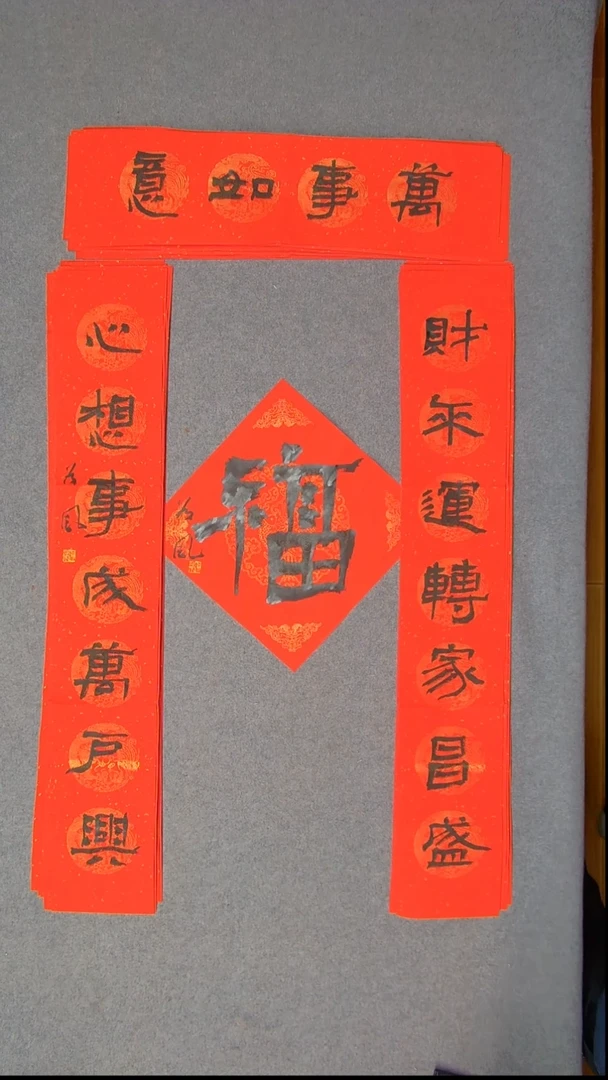 萬事如意
財来運轉家昌盛
心想事成萬戶興
福